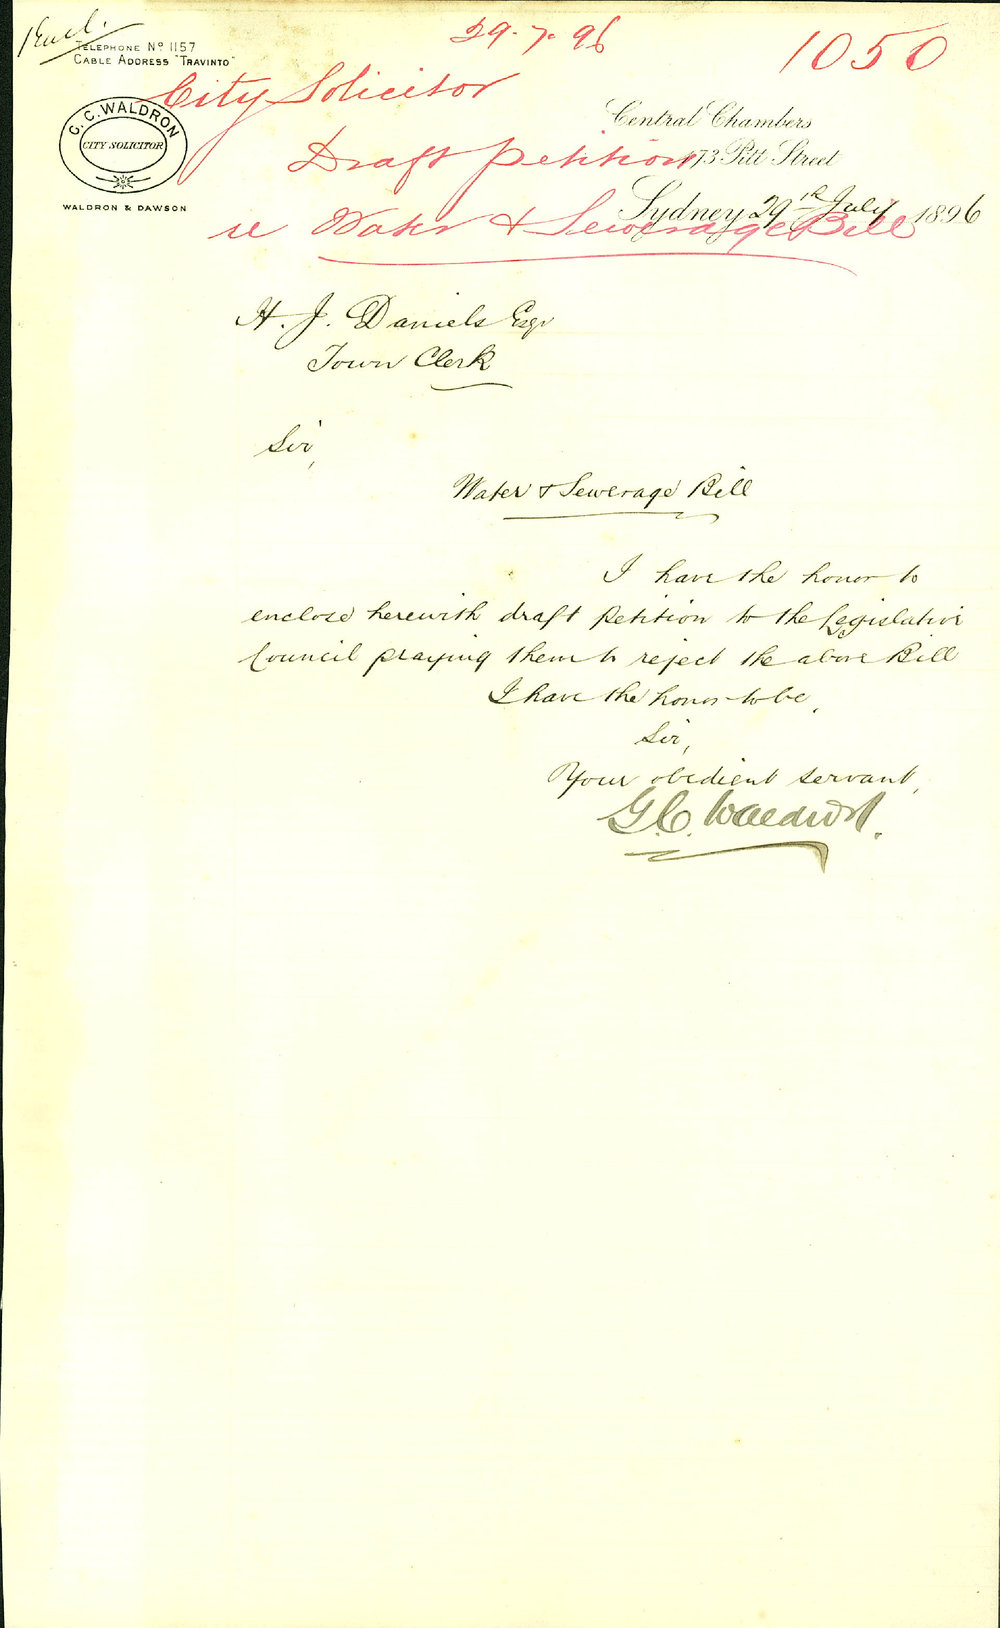 1 Encl.
29.7.96
1050
TELEPHONE No 1157
CABLE ADDRESS "TRAVINTO"
City Solicitor
C.C. WALDRON
CITY SOLICITOR
WALDRON & DAWSON
Central Chambers
Draft petition
173 Pitt Street
Sydney 29th July 1896
re Water & Sewerage Bill
H. J. Daniels Esqr
Town Clerk
Sir,
Water & Sewerage Bill
I have the honor to
enclose herewith draft petition to the Legislative
Council praying them to reject the above Bill
I have the honor to be,
Sir,
Your obedient servant,
G.C. Waldron.